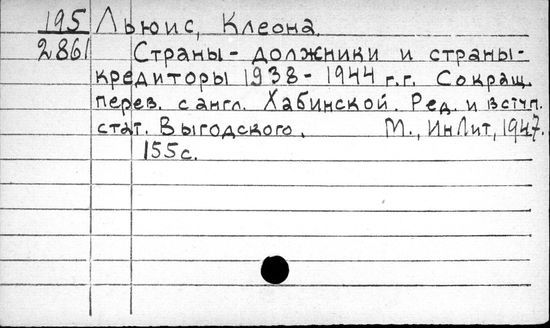 195 Льюис, Клеона.
2861 Страны- должники и страны-
кредиторы 1938-1944 г.г. Сокращ.
перев. с англ. Хабинской. Ред. и вступ.
стат. Выгодского. М., ИнЛит, 1947.
155с.